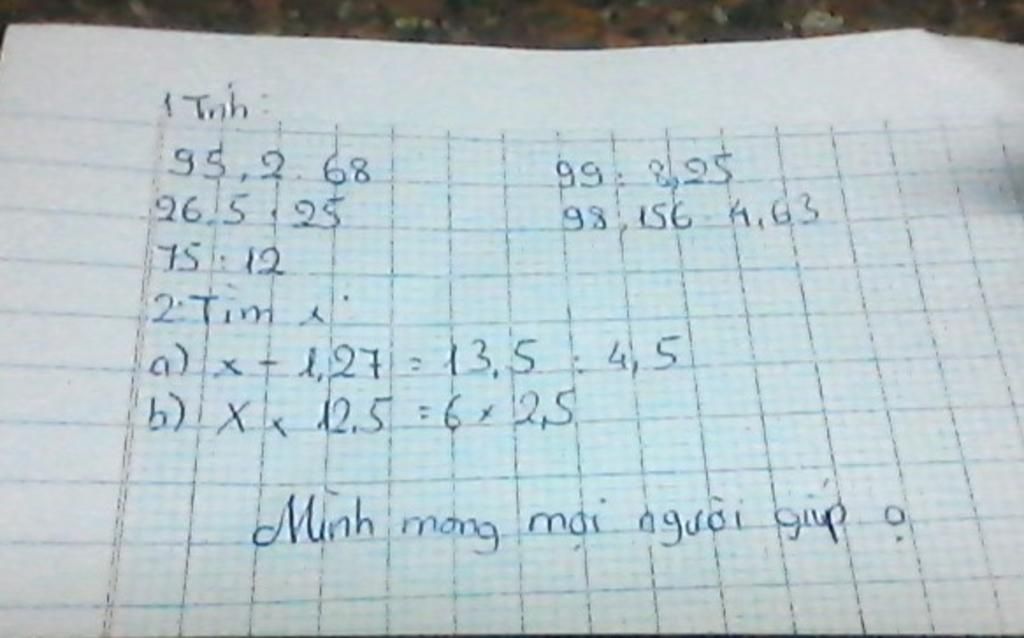 1 Tính:
95,2 : 68 99 : 8,25
26,5 : 25 98,156 : 4,63
75 : 12
2. Tìm x:
a) x - 1,27 = 13,5 : 4,5
b) X x 12,5 = 6 x 2,5
Mình mong mọi người giúp ạ